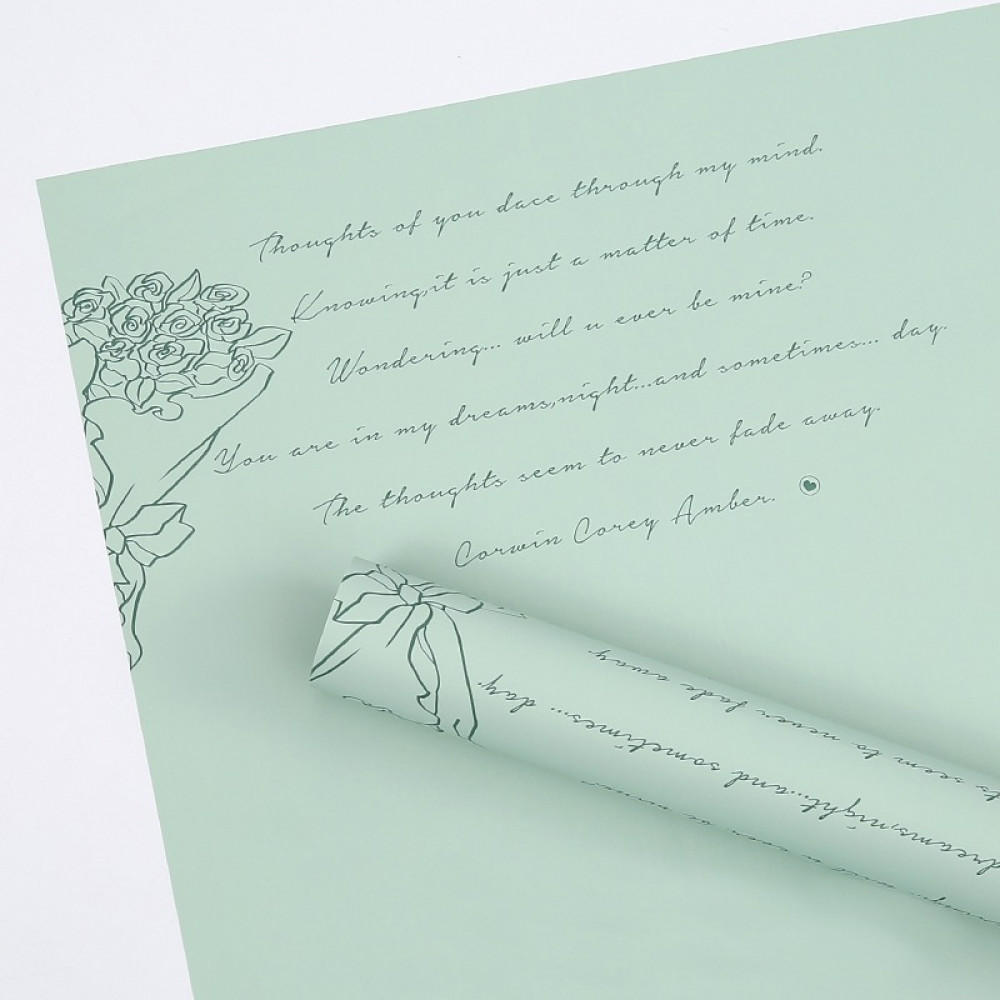 Thoughts of you dace through my mind.
Knowing,it is just a matter of time.
Wondering... will u ever be mine?
You are in my dreams,night...and sometimes... day.
The thoughts seem to never fade away.
Corwin Corey Amber.
seem to never fade away.
dreams,night...and sometimes... day.